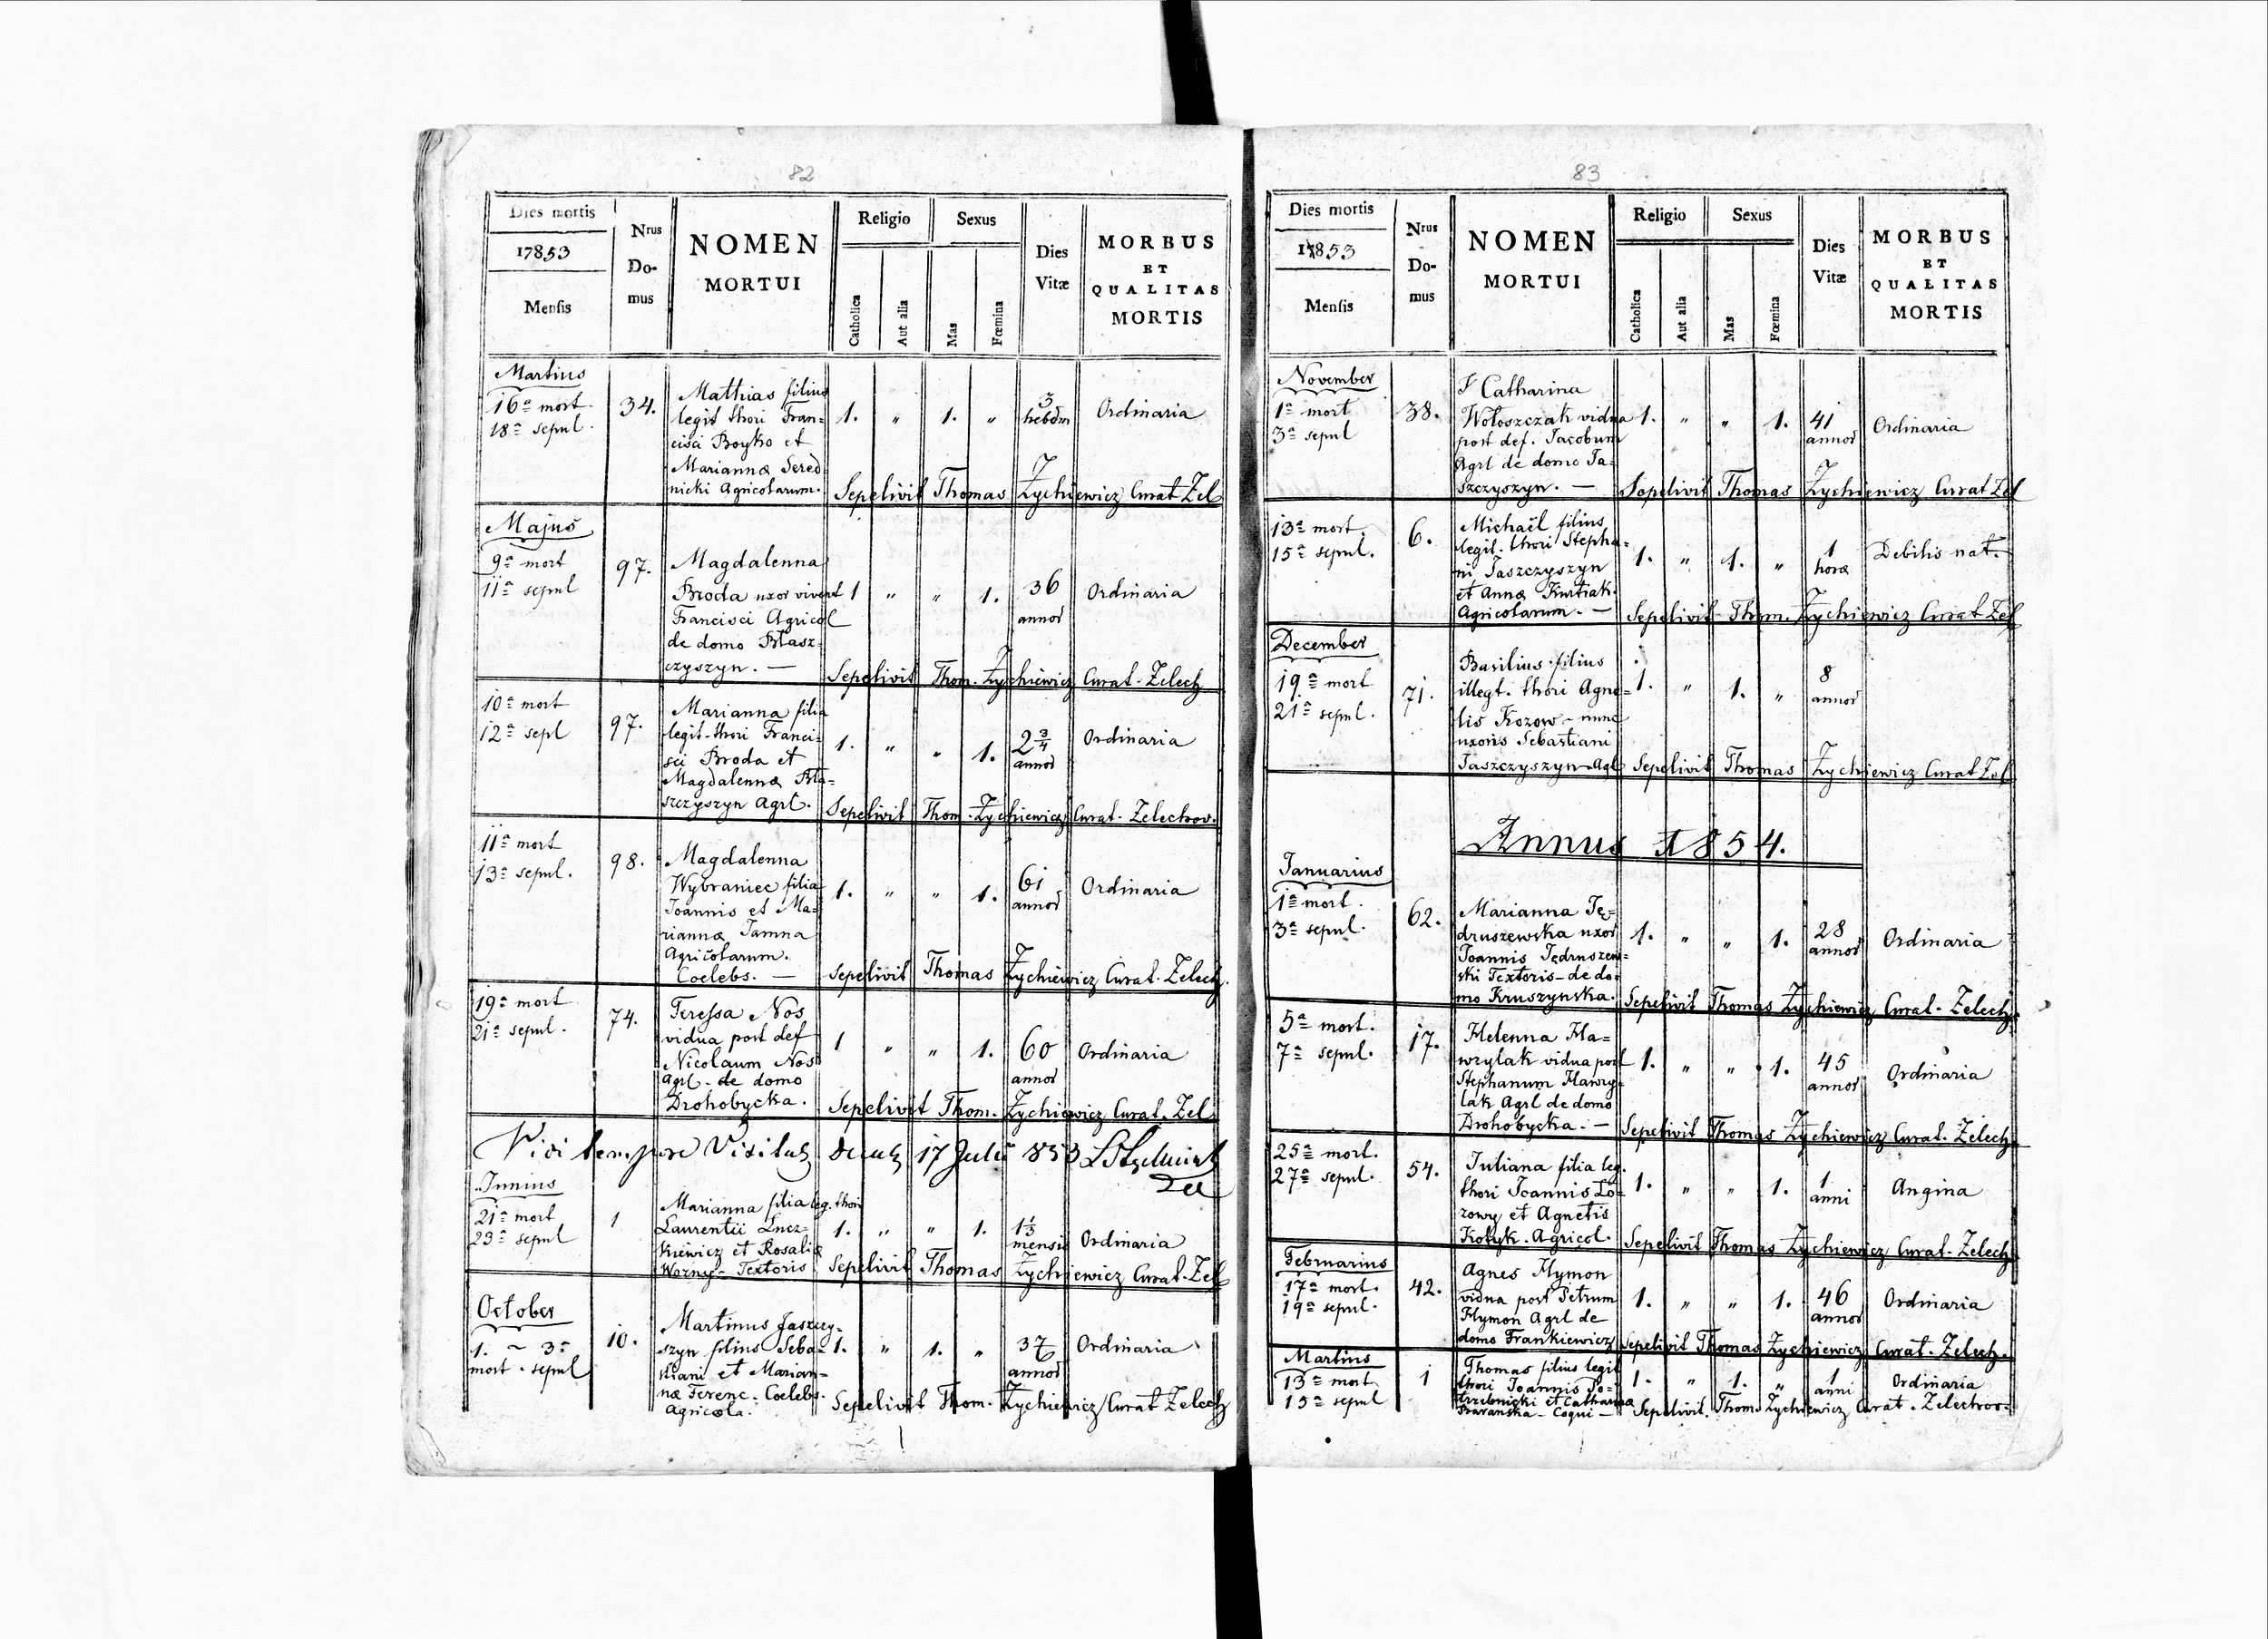 82
Dies mortis
17853
Mensis
Nrus
Do-
mus
NOMEN
MORTUI
Religio
Catholica
Aut alia
Sexus
Mas
Fœmina
Dies
Vitæ
MORBUS
ET
QUALITAS
MORTIS
Martius
16a mort.
18a sepul.
34.
Mathias filius
legit thori Fran-
cisci Boyko et
Mariannæ Sered-
nicki Agricolarum.
1. „ 1. „
3
hebdm
Ordinaria
Sepelivit Thomas Zychiewicz Curat Zel
Majus
9a mort
11a sepul
97.
Magdalenna
Broda uxor vivent
Francisci Agricol
de domo Błasz-
czyszyn. —
1 „ „ 1.
36
annor
Ordinaria
Sepelivit Thom. Zychiewicz Curat. Zelech
10a mort
12a sepl
97.
Marianna filia
legit. thori Franci-
sci Broda et
Magdalennæ Bła-
szczyszyn Agrl.
1. „ „ 1.
2 3/4
annor
Ordinaria
Sepelivit Thom. Zychiewicz Curat. Zelechov.
11a mort
13a sepul.
98.
Magdalenna
Wybraniec filia
Joannis et Ma-
riannæ Jamna
Agricolarum.
Coelebs. —
1. „ „ 1.
61
annor
Ordinaria
Sepelivit Thomas Zychiewicz Curat. Zelech
19a mort
21a sepul.
74.
Teressa Nos
vidua post def
Nicolaum Nos
Agrl. de domo
Drohobycka.
1 „ „ 1.
60
annor
Ordinaria
Sepelivit Thom. Zychiewicz Curat. Zel
Vidi tempore Visitat 17 Julii 853
Junius
21a mort
23a sepul
1
Marianna filia leg. thori
Laurentii Lucz-
kiewicz et Rosaliæ
Wozny - Textoris
1. „ „ 1.
1 1/3
mensis
Ordinaria
Sepelivit Thomas Zychiewicz Curat. Zel
October
1. ~ 3a
mort. sepul
10.
Martinus Jaszczy-
szyn filius Seba-
stiani et Marian-
næ Ferenc. Coelebs.
Agricola.
1. „ 1. „
37
annor
Ordinaria
Sepelivit Thom. Zychiewicz Curat Zelech
83
Dies mortis
17853
Mensis
Nrus
Do-
mus
NOMEN
MORTUI
Religio
Catholica
Aut alia
Sexus
Mas
Fœmina
Dies
Vitæ
MORBUS
ET
QUALITAS
MORTIS
November
1a mort
3a sepul
38.
Catharina
Wołoszczak vidua
post def. Jacobum
Agrl de domo Ja-
szczyszyn. —
1. „ „ 1.
41
annor
Ordinaria
Sepelivit Thomas Zychiewicz Curat Zel
13a mort.
15a sepul.
6.
Michaël filius
legit. thori Stepha-
ni Jaszczyszyn
et Annæ Kurtiak.
Agricolarum. —
1. „ 1. „
1
horæ
Debilis nat.
Sepelivit Thom. Zychiewicz Curat Zel
December
19a mort
21a sepul.
71.
Basilius filius
illegt. thori Agne-
tis Kozow - nunc
uxoris Sebastiani
Jaszczyszyn Agl
1. „ 1. „
8
annor
Sepelivit Thomas Zychiewicz Curat Zel
Annus 1854.
Januarius
1a mort.
3a sepul.
62.
Marianna Ję-
druszewska uxor
Joannis Jędruszew-
ski Textoris - de do-
mo Kruszynska.
1. „ „ 1.
28
annor
Ordinaria
Sepelivit Thomas Zychiewicz Curat. Zelech
5a mort.
7a sepul.
17.
Helenna Ha-
wrylak vidua post
Stephanum Hawry-
lak Agrl de domo
Drohobycka. —
1. „ „ 1.
45
annor
Ordinaria
Sepelivit Thomas Zychiewicz Curat. Zelech
25a mort.
27a sepul.
54.
Juliana filia leg.
thori Joannis Lo-
zowy et Agnetis
Kotyk. Agricol.
1. „ „ 1.
1
anni
Angina
Sepelivit Thomas Zychiewicz Curat. Zelech
Februarius
17a mort.
19a sepul.
42.
Agnes Hymon
vidua post Petrum
Hymon Agrl de
domo Frankiewicz
1. „ „ 1.
46
annor
Ordinaria
Sepelivit Thomas Zychiewicz Curat. Zelech.
Martius
13a mort
15a sepul
1
Thomas filius legit
thori Joannis Po-
trzebnicki et Catharinæ
Baranska - Coqui —
1. „ 1. „
1
anni
Ordinaria
Sepelivit. Thom. Zychiewicz Curat. Zelechov.